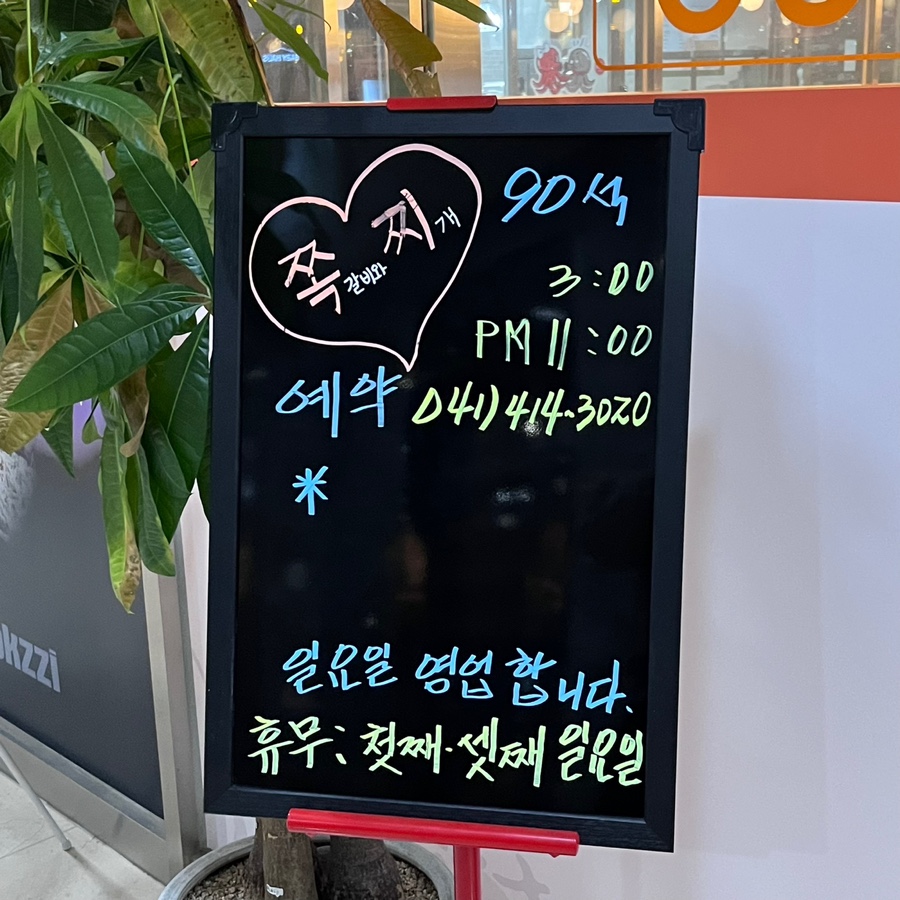 쪽갈비와 찌개
90석
3:00
PM 11:00
예약 041) 414-3020
*
일요일 영업합니다.
휴무: 첫째·셋째 일요일
kzzi